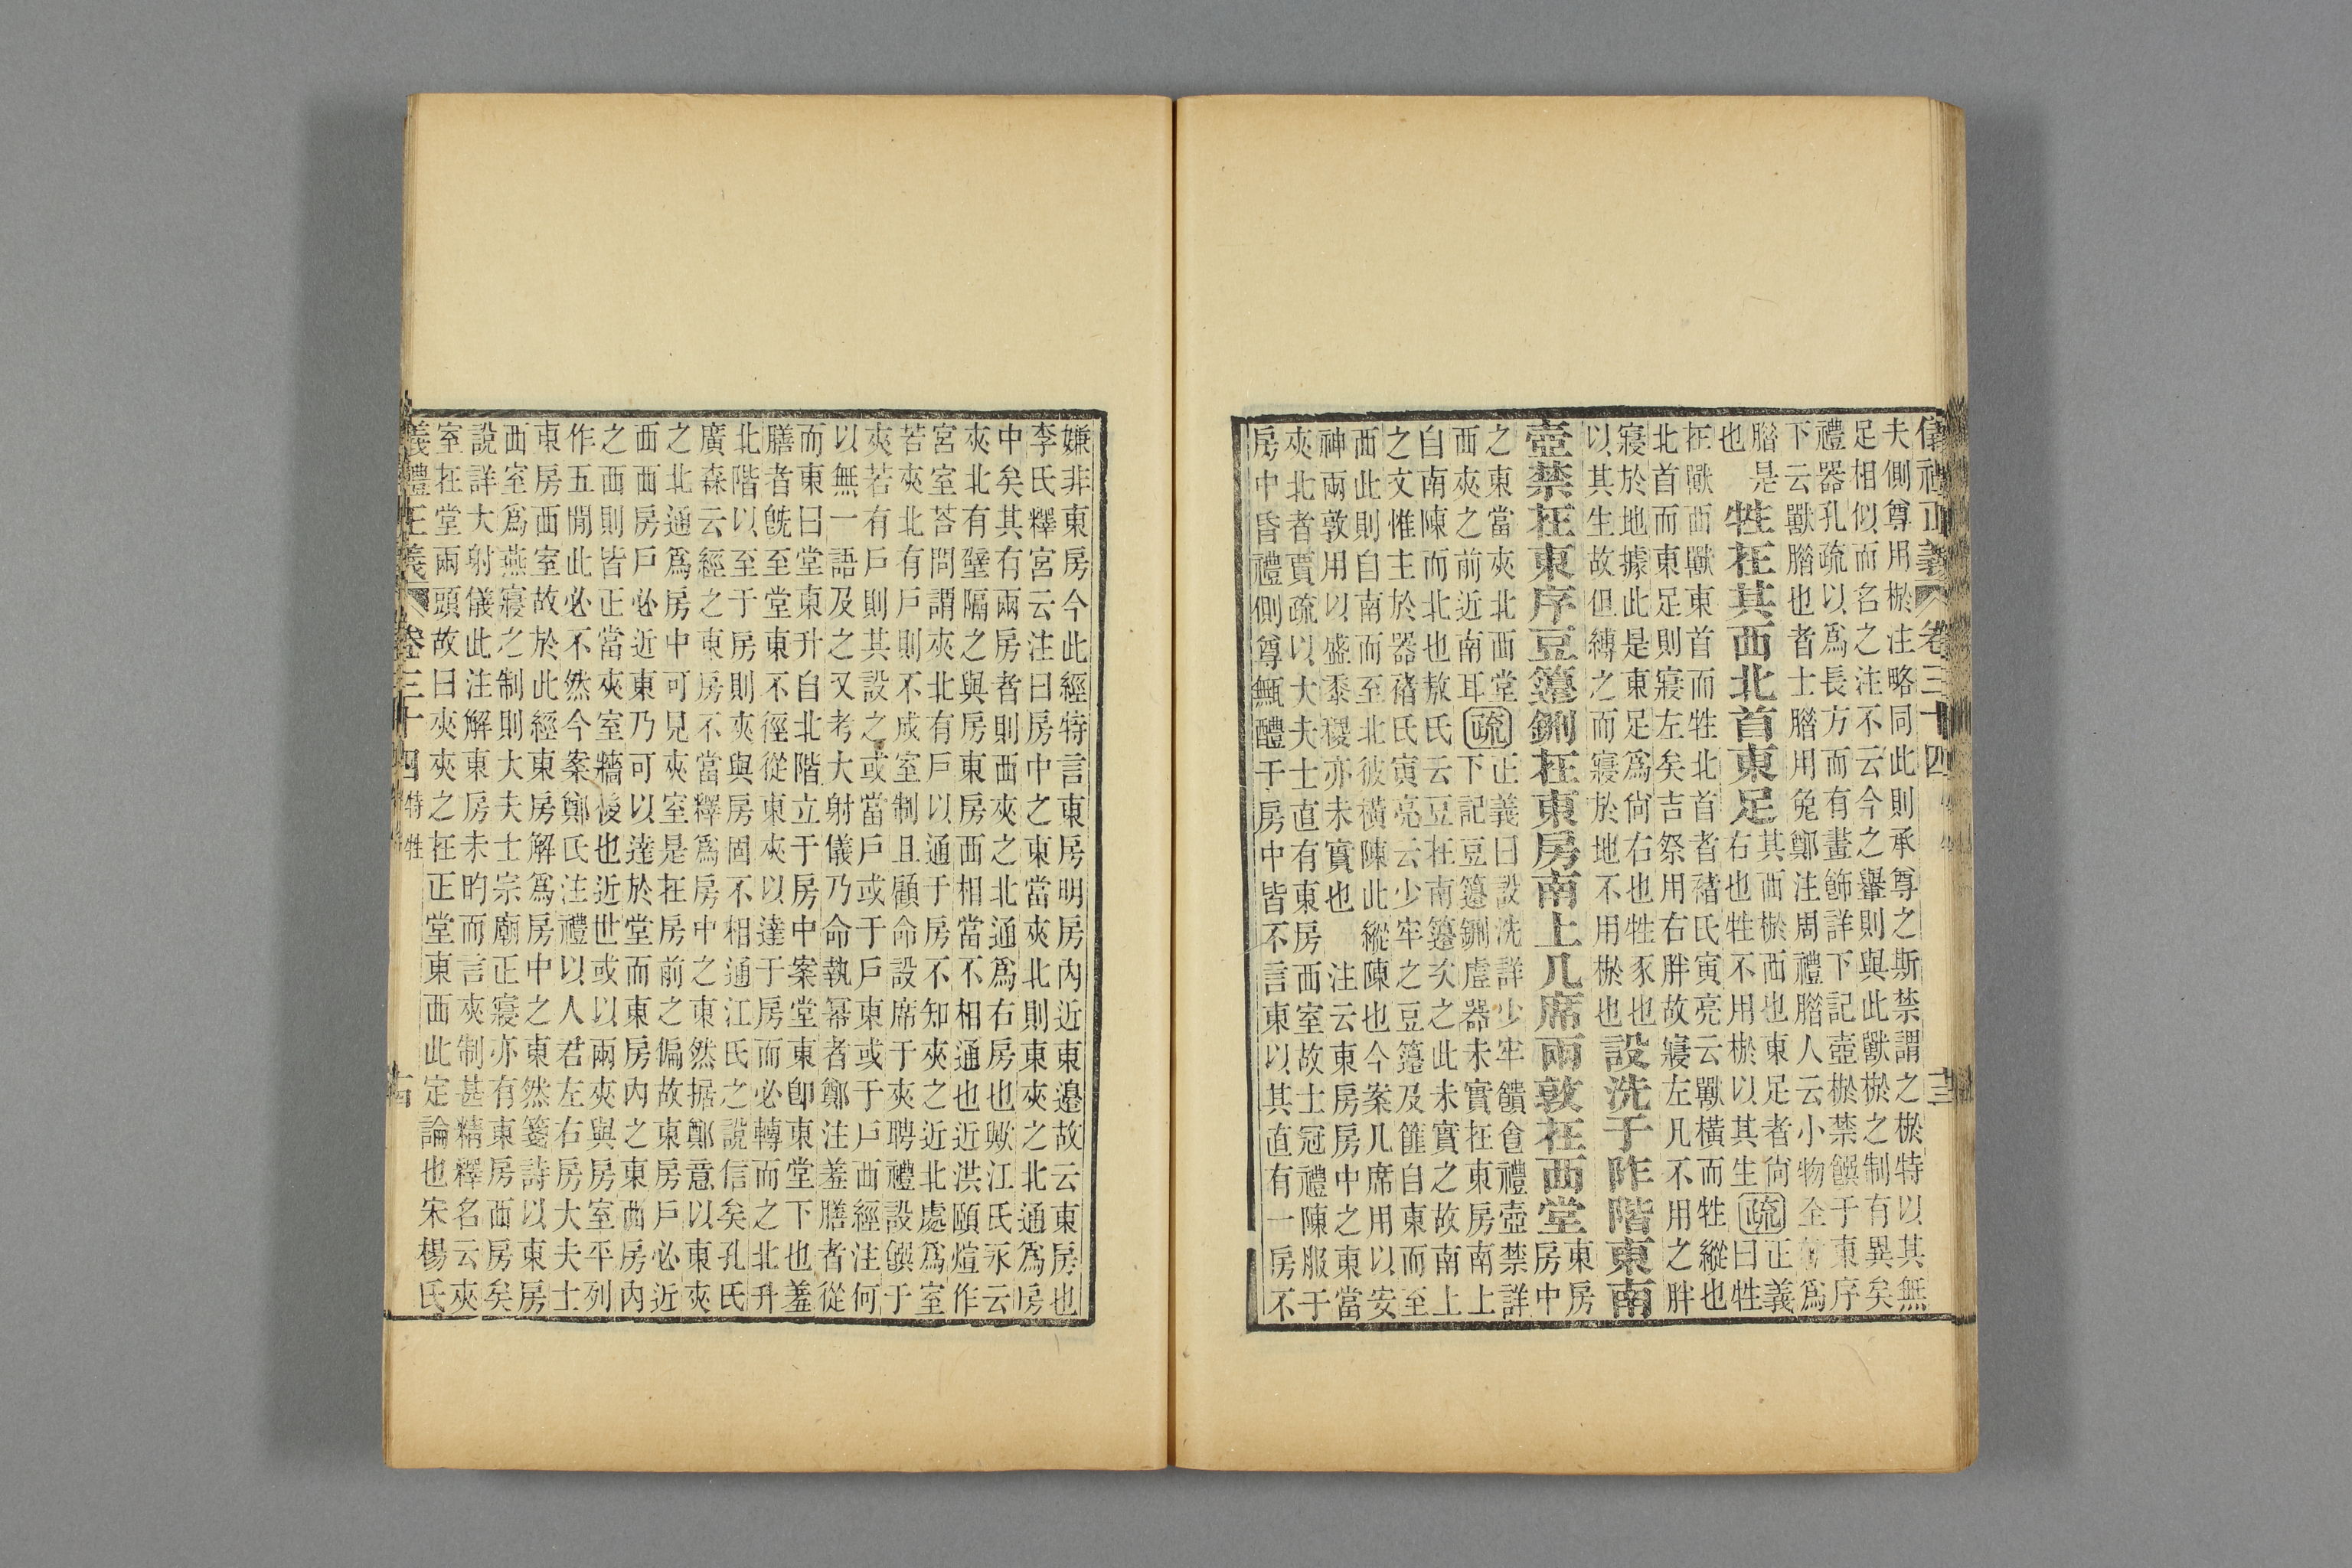 儀禮正義 卷三十四 十三
夫側尊用棜注略同此則承尊之斯禁謂之棜特以其無
足相似而名之注不云今之轝則與此獸棜之制有異矣
禮器孔疏以爲長方而有畫飾詳下記壺棜禁饌于東序
下云獸腊也者士腊用兔鄭注周禮腊人云小物全乾爲
腊是
也
牲在其西北首東足
其西棜西也東足者尙
右也牲不用棜以其生
疏
正義
曰牲
在獸西獸東首而牲北首者褚氏寅亮云獸橫而牲縱也
北首而東足則寢左矣吉祭用右胖故寢左几不用之胖
寢於地據此是東足爲尙右也牲豕也
以其生故但縛之而寢於地不用棜也
設洗于阼階東南
壺禁在東序豆籩鉶在東房南上几席兩敦在西堂
東房
房中
之東當夾北西堂
西夾之前近南耳
疏
正義曰設洗詳少牢饋食禮壺禁詳
下記豆籩鉶虛器未實在東房南上
自南陳而北也敖氏云豆在南籩次之此未實之故南上
之文惟主於器褚氏寅亮云少牢之豆籩及篚自東而至
西此則自南而至北彼橫陳此縱陳也今案几席用以安
神兩敦用以盛黍稷亦未實也 注云東房房中之東當
夾北者賈疏以大夫士直有東房西室故士冠禮陳服于
房中昏禮側尊甒醴于房中皆不言東以其直有一房不
嫌非東房今此經特言東房明房內近東邊故云東房也
李氏釋宮云注曰房中之東當夾北則東夾之北通爲房
中矣其有兩房者則西夾之北通爲右房也歟江氏永云
夾北有壁隔之與房東房西相當不相通也近洪頤煊作
宮室荅問謂夾北有戶以通于房不知夾之近北處爲室
若夾北有戶則不成室制且顧命設席于夾聘禮設饌于
夾若有戶則其設之或當戶或于戶東或于戶西經注何
以無一語及之又考大射儀乃命執冪者鄭注羞膳者從
而東曰堂東升自北階立于房中案堂東卽東堂下也羞
膳者旣至堂東不徑從東夾以達于房而必轉而之北升
北階以至于房則夾與房固不相通江氏之說信矣孔氏
廣森云經之東房不當釋爲房中之東然据鄭意以東夾
之北通爲房中可見夾室是在房前之偏故東房戶必近
西西房戶必近東乃可以達於堂而東房內之東西房內
之西則皆正當夾室牆後也近世或以兩夾與房室平列
作五閒此必不然今案鄭氏注禮以人君左右房大夫士
東房西室故於此經東房解爲房中之東然箋詩以東房
西室爲燕寢之制則大夫士宗廟正寢亦有東房西房矣
說詳大射儀此注解東房未昀而言夾制甚精釋名云夾
室在堂兩頭故曰夾夾之在正堂東西此定論也宋楊氏
義禮正義 卷三十四 特牲 古